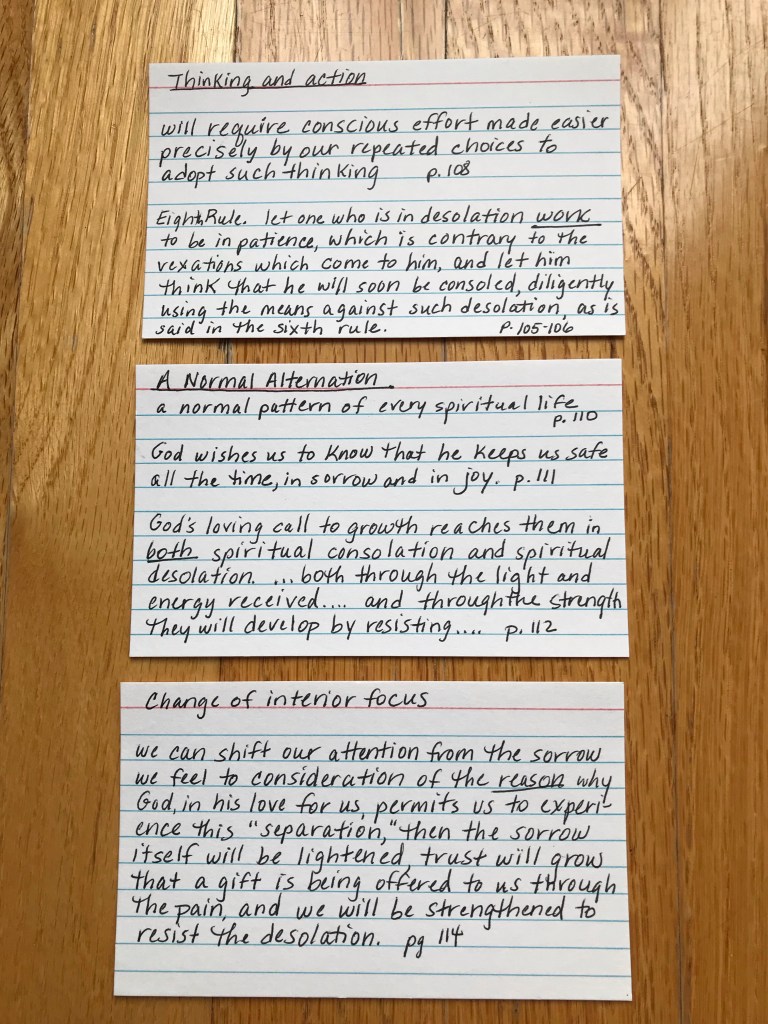 Thinking and action
will require conscious effort made easier
precisely by our repeated choices to
adopt such thinking p. 108
Eighth Rule. let one who is in desolation work
to be in patience, which is contrary to the
vexations which come to him, and let him
think that he will soon be consoled, diligently
using the means against such desolation, as is
said in the sixth rule. P. 105-106
A Normal Alternation
a normal pattern of every spiritual life
p. 110
God wishes us to know that he keeps us safe
all the time, in sorrow and in joy. p. 111
God's loving call to growth reaches them in
both spiritual consolation and spiritual
desolation. ... both through the light and
energy received.... and through the strength
they will develop by resisting.... p. 112
Change of interior focus
we can shift our attention from the sorrow
we feel to consideration of the reason why
God, in his love for us, permits us to experi-
ence this "separation," then the sorrow
itself will be lightened, trust will grow
that a gift is being offered to us through
the pain, and we will be strengthened to
resist the desolation. pg 114